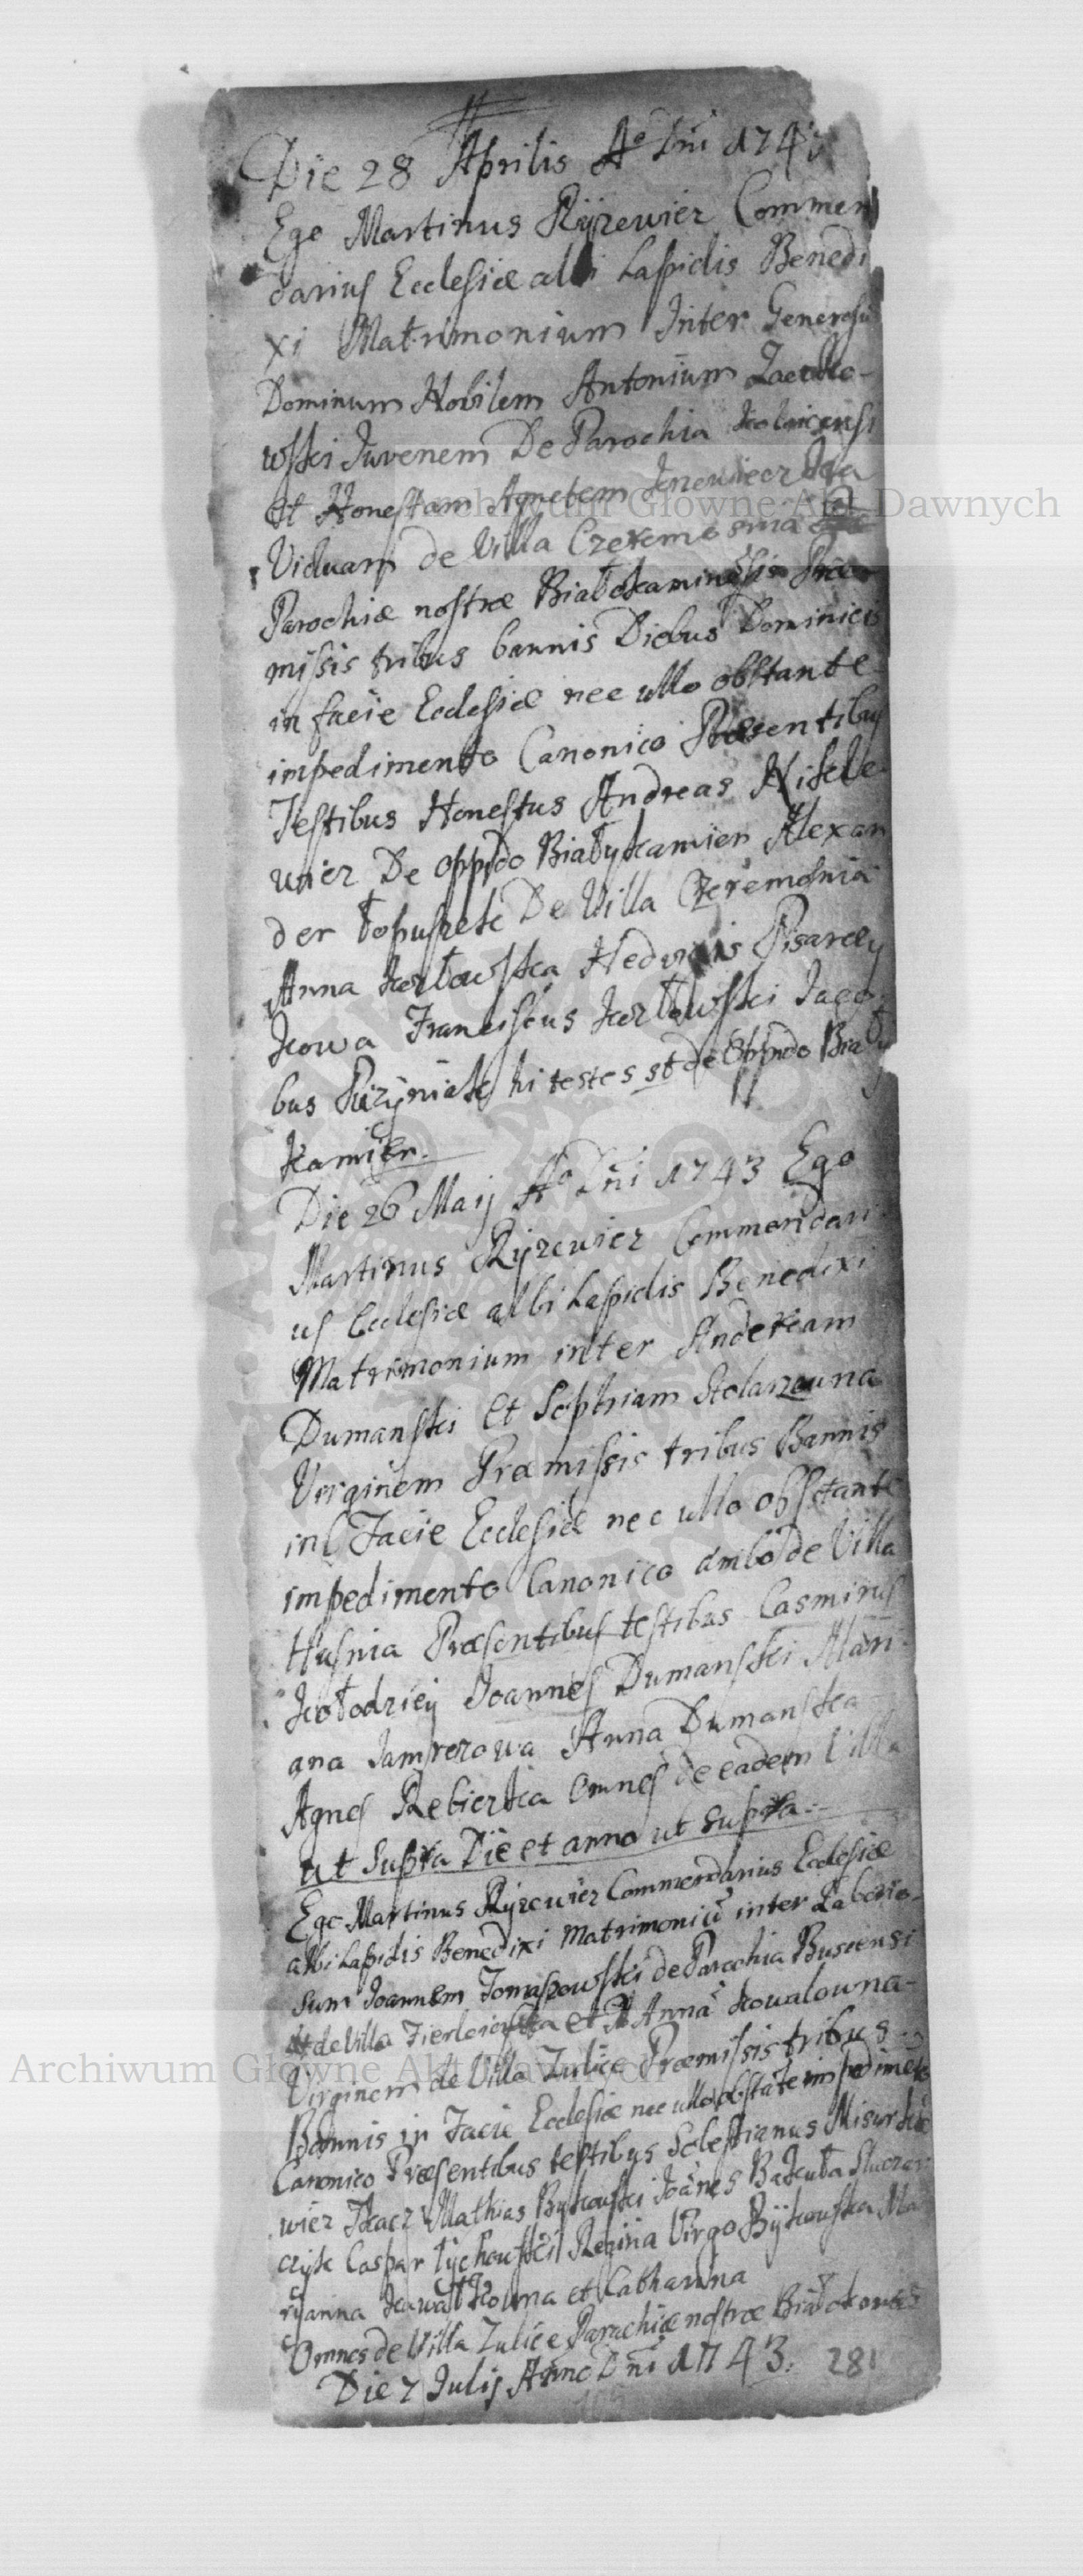 Die 28 Aprilis Aº Dni 1743
Ego Martinus Ryzewicz Commen
darius Ecclesiæ albi Lapidis Benedi
xi Matrimonium Inter Generosu
Dominum Nobilem Antonium
wski Juvenem De Parochia
Et Honestam Agnetem
Viduam de Villa Czeremosnia
Parochiæ nostræ Białokaminensis Præ
missis tribus bannis Diebus Dominicis
in facie Ecclesiæ nec ullo obstante
impedimento Canonico Præsentibus
Testibus Honestus Andreas Nisele
wicz De oppido Białykamien Alexan
der Łopuszek De Villa Czeremosnia
Anna Kozłowska Hedvigis Pisarczy
kowa Franciscus Kozłowski Jaco
bus hi testes st de Oppido Biały
kamien.
Die 26 Maij Aº Dni 1743 Ego
Martinus Ryzewicz Commendari
us Ecclesiæ albi Lapidis Benedixi
Matrimonium inter Andream
Dumanski et Sophiam Stolarzowna
Virginem Præmissis tribus Bannis
in Facie Ecclesiæ nec ullo obstante
impedimento Canonico ambo de Villa
Husnia Præsentibus testibus Casmirus
Kołodziey Joannes Dumanski Mari
ana Anna Dumanska
Agnes omnes de eadem Villa
ut Supra Die et anno ut supra
Ego Martinus Ryzewicz Commendarius Ecclesiæ
albi Lapidis Benedixi Matrimoniũ inter Laborio
sum Joannem Tomaszowski de Parochia Buscensi
de Villa et Annã Kowalowna
Virginem de Villa Zulice Præmissis tribus
Bannis in Facie Ecclesiæ nec ullo obstãte impedimẽto
Canonico Præsentibus testibus
wicz Tkacz Mathias Bykowski Joães
Caspar Tychowski Regina Virgo Bykowska Ma
ryanna et Catharina
Omnes de Villa Zulice Parochiæ nostræ
Die 7 Julij Anno Dni 1743. 281
Archiwum Główne Akt Dawnych
Archiwum Główne Akt Dawnych